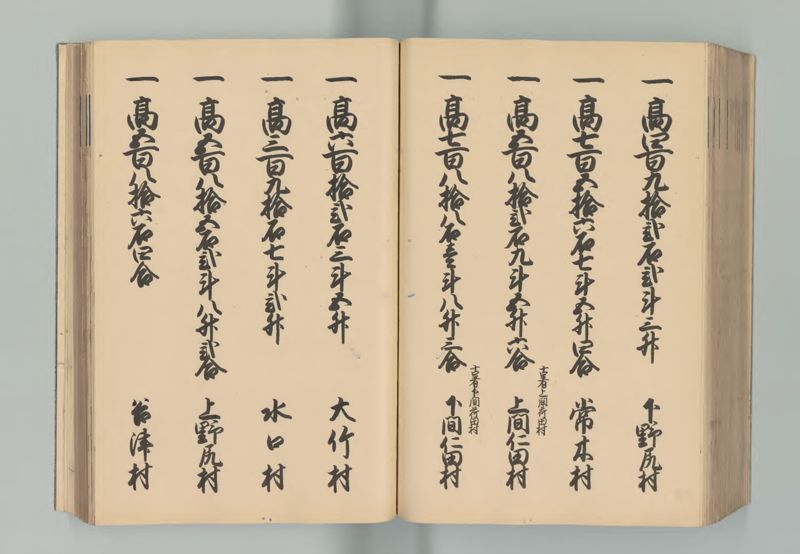 一高四百九拾弐石弐斗三升 下野尻村
一高七百五拾六石七斗五升四合 常木村
一高五百八拾弐石九斗五升六合 上間仁田村
古者上間荷田村
一高七百八拾八石壱斗八升三合 下間仁田村
古者下間荷田村
一高六百拾弐石三斗五升 大竹村
一高三百九拾石七斗弐升 水口村
一高五百八拾六石弐斗八升弐合 上野尻村
一高五百八拾六石四合 谷津村